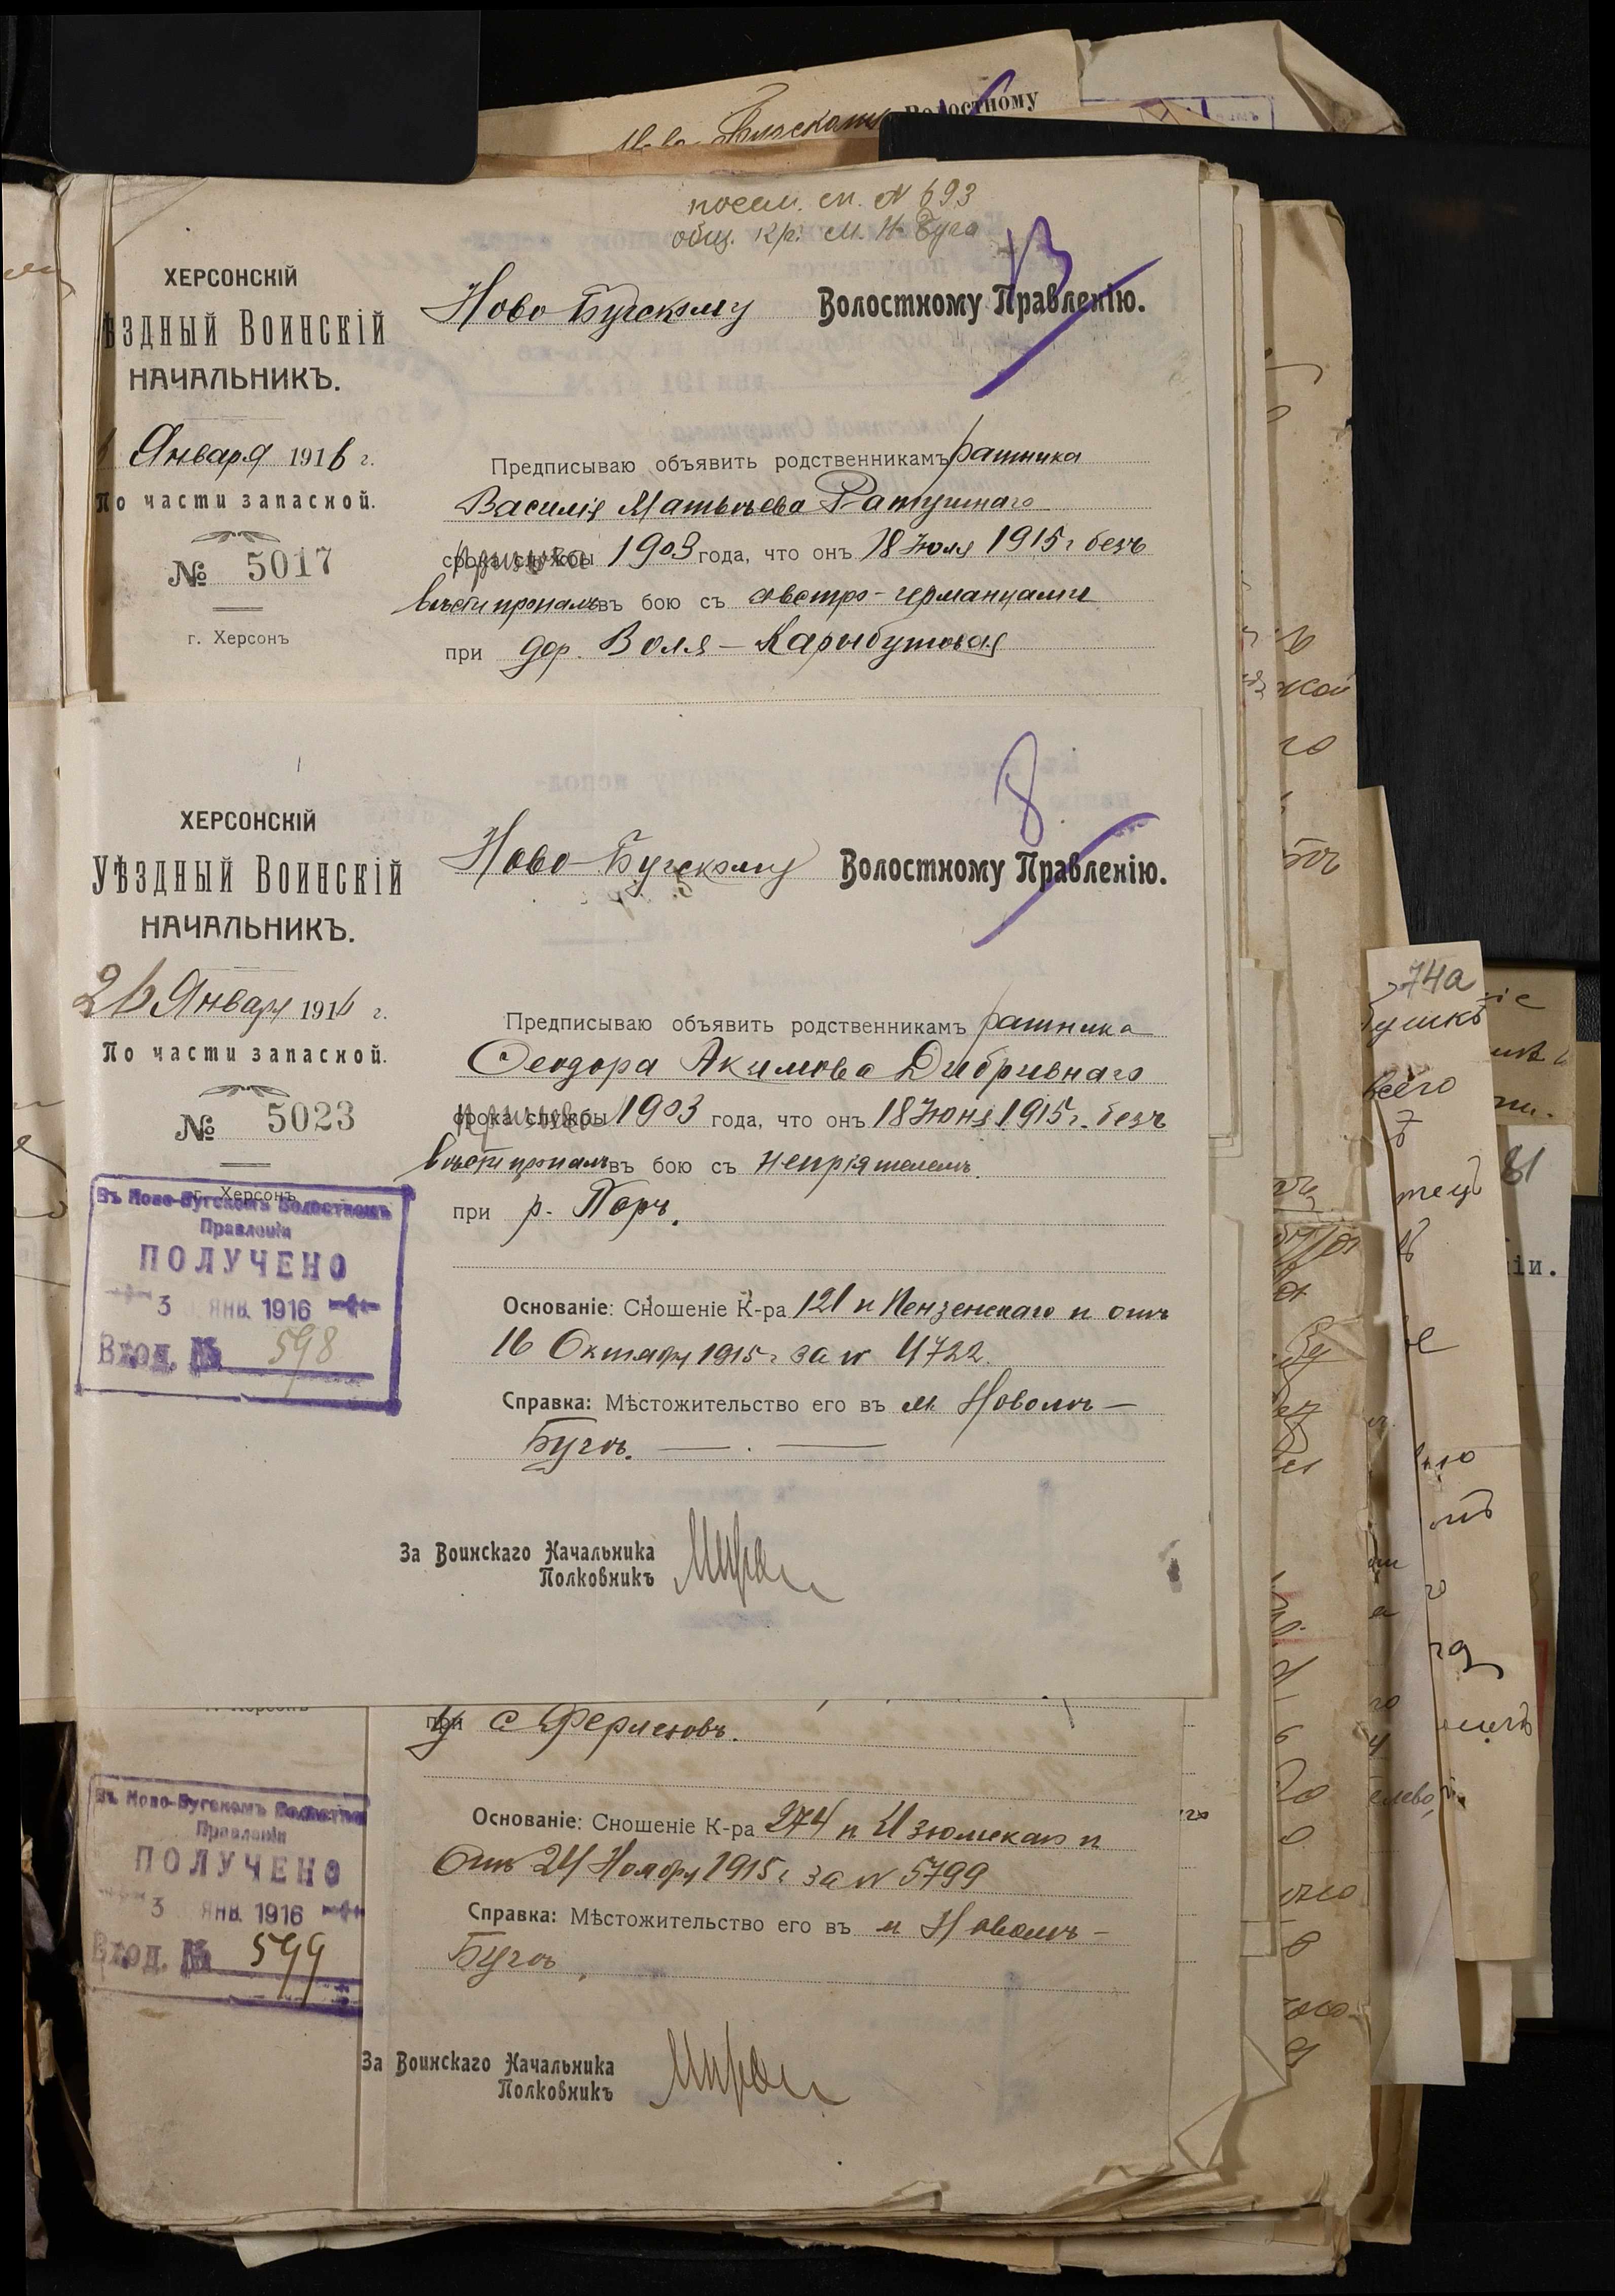 Волостному
посем. сп. № 693
общ. кр. м. Н Буга
ХЕРСОНСКІЙ
ѢЗДНЫЙ ВОИНСКІЙ
НАЧАЛЬНИКЪ.
Января 1916 г.
По части запасной.
№ 5017
г. Херсонъ
Ново-Бугскому Волостному Правленію.
Предписываю объявить родственникамъ ратника
Василія Матвѣева Ратушнаго
срока службы призыва 1903 года, что онъ 18 Іюля 1915 г безъ
вѣсти пропалъ въ бою съ австро-германцами
при дер. Воля-Карыбутовая
ХЕРСОНСКІЙ
УѢЗДНЫЙ ВОИНСКІЙ
НАЧАЛЬНИКЪ.
26 Января 1916 г.
По части запасной.
№ 5023
г. Херсонъ
Въ Ново-Бугскомъ Волостномъ
Правленіи
ПОЛУЧЕНО
3 ЯНВ. 1916
Вход. № 598
Ново-Бугскому Волостному Правленію.
Предписываю объявить родственникамъ ратника
Феодора Акимова Дибривнаго
срока службы призыва 1903 года, что онъ 18 Іюня 1915 г. безъ
вѣсти пропалъ въ бою съ непріятелемъ
при р. Порѣ.
Основаніе: Сношеніе К-ра 121 п Пензенскаго п отъ
16 Октября 1915 г за № 4722.
Справка: Мѣстожительство его въ м. Новомъ-
Бугѣ.
За Воинскаго Начальника
Полковникъ
при у с
Въ Ново-Бугскомъ
Правленіи
ПОЛУЧЕНО
3 ЯНВ. 1916
Вход. № 599
Основаніе: Сношеніе К-ра 274 п Изюмскаго п
Отъ 24 Ноября 1915 г за № 5799
Справка: Мѣстожительство его въ м Новомъ-
Бугѣ.
За Воинскаго Начальника
Полковникъ
74а
81